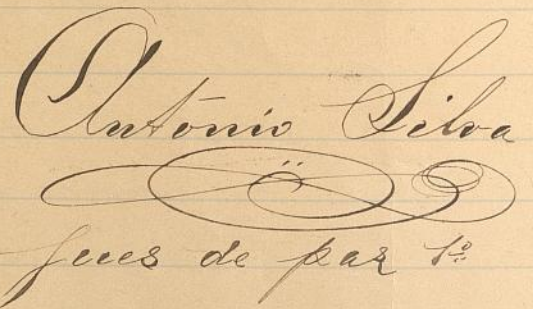 António Silva
Jues de paz 1º